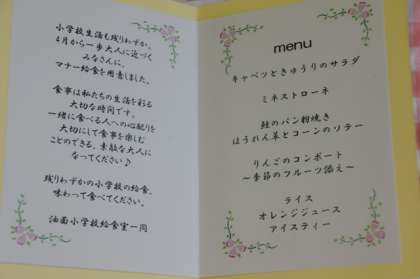 小学校生活も残りわずか。
4月から一歩大人に近づく
みなさんに、
マナー給食を用意しました。
食事は私たちの生活を彩る
大切な時間です。
一緒に食べる人への心配りを
大切にして食事を楽しむ
ことのできる、素敵な大人に
なってください♪
残りわずかの小学校の給食、
味わって食べてください。
油面小学校給食室一同
menu
キャベツときゅうりのサラダ
ミネストローネ
鮭のパン粉焼き
ほうれん草とコーンのソテー
りんごのコンポート
～季節のフルーツ添え～
ライス
オレンジジュース
アイスティー